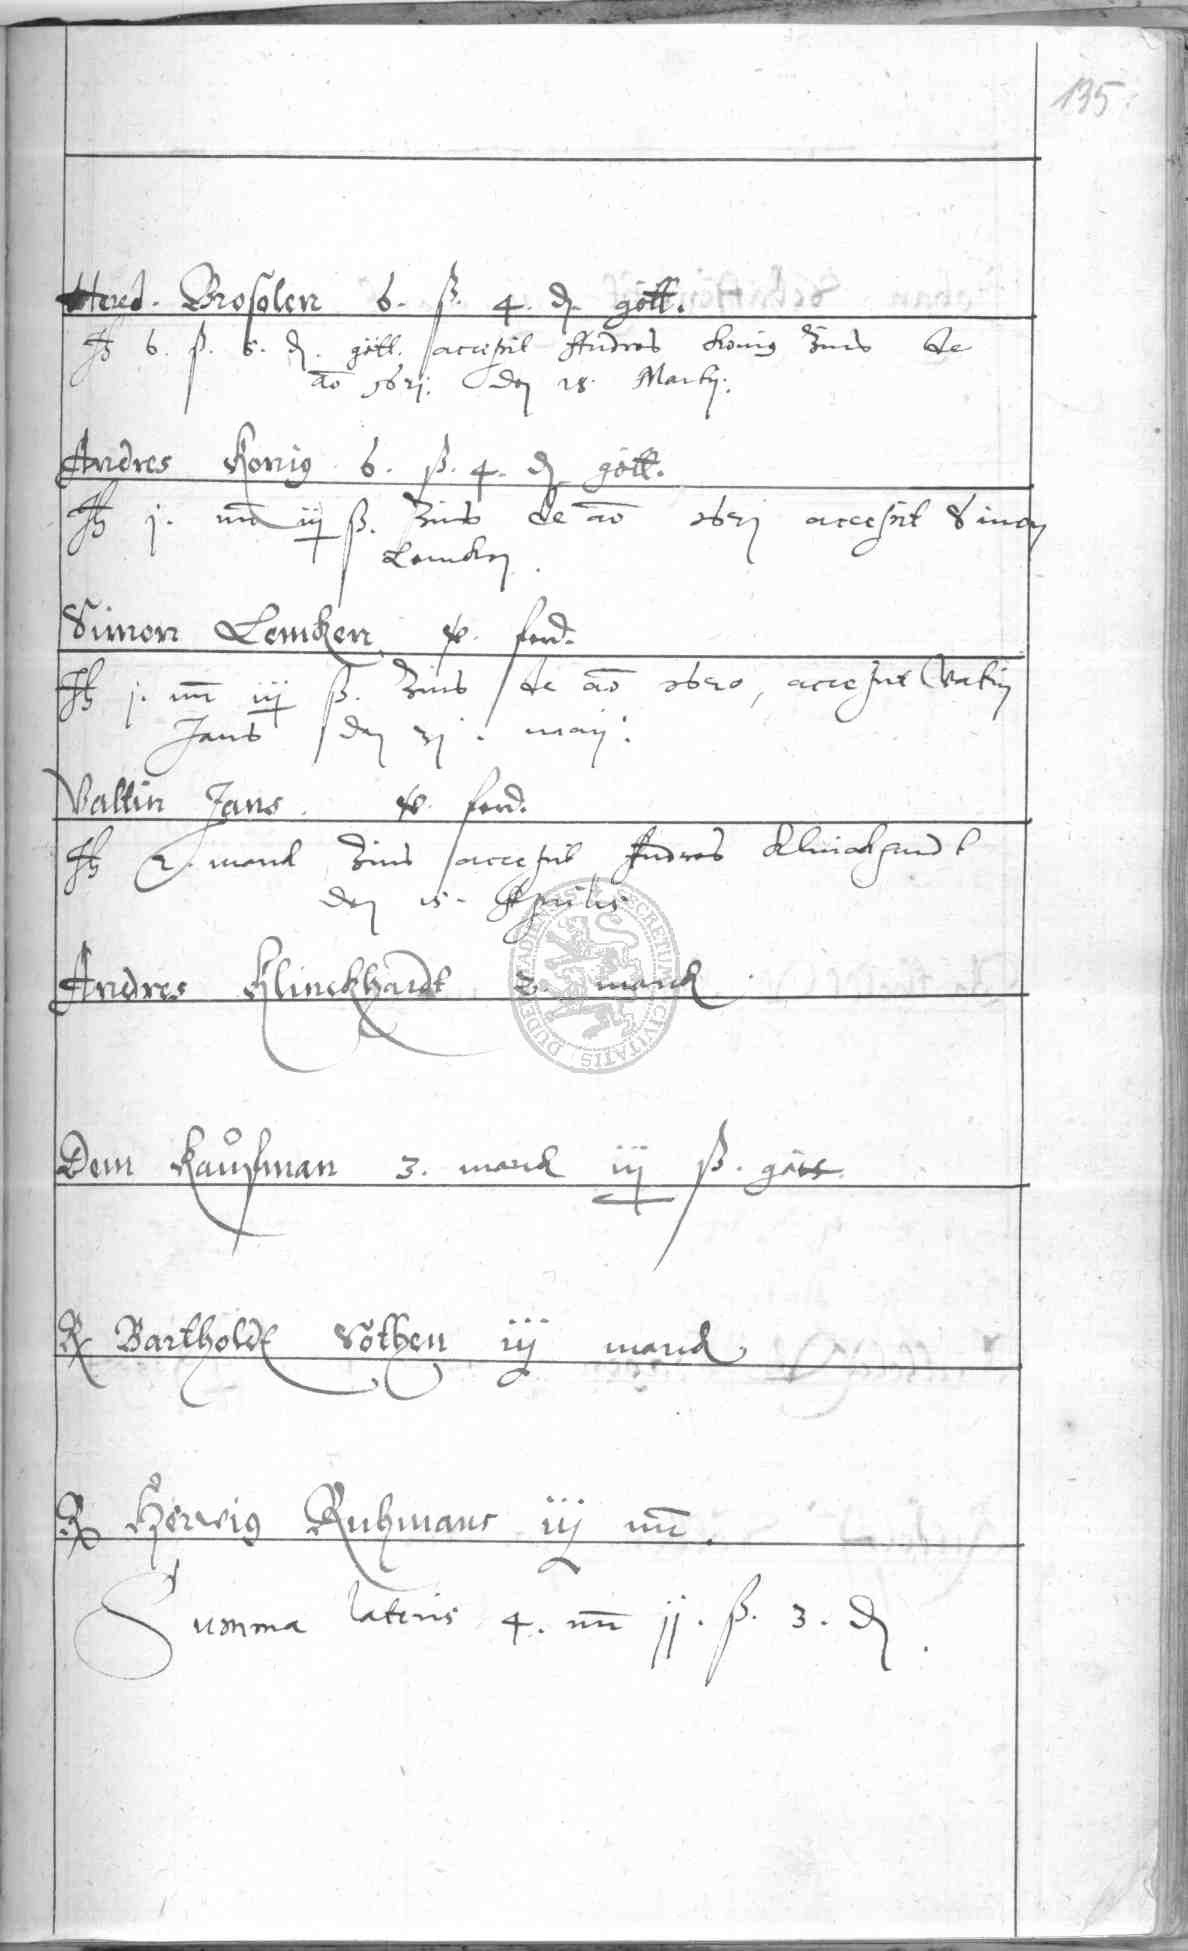 135.
Hered. Brosolen 6. ß. 4. ₰. gött.
6. ß. 5. ₰. gött. accepit Andres König Zins de
ao 1621. den 18. Martij.
Andres König 6. ß. 4. ₰ gött.
j. mr iij ß. Zins de ao 1621 accepit Simon
Lemken.
Simon Lemcken ferd.
j. mr iij ß. Zins de ao 1620, accepit Valtin
Jans den 21. maij.
Valtin Jans. ferd.
2. marck Zins accepit Andres Klinckhardt
den 15. Aprilis
Andres Klinckhardt 2. marck
Dem Kaufman 3. marck iij ß. gött.
Bartholdt Söthen iij marck
Herwig Ruhmans iij mr.
Summa lateris 4. mr jj. ß. 3. ₰.
SECRETUM CIVITATIS DUDERSTADIENSIS